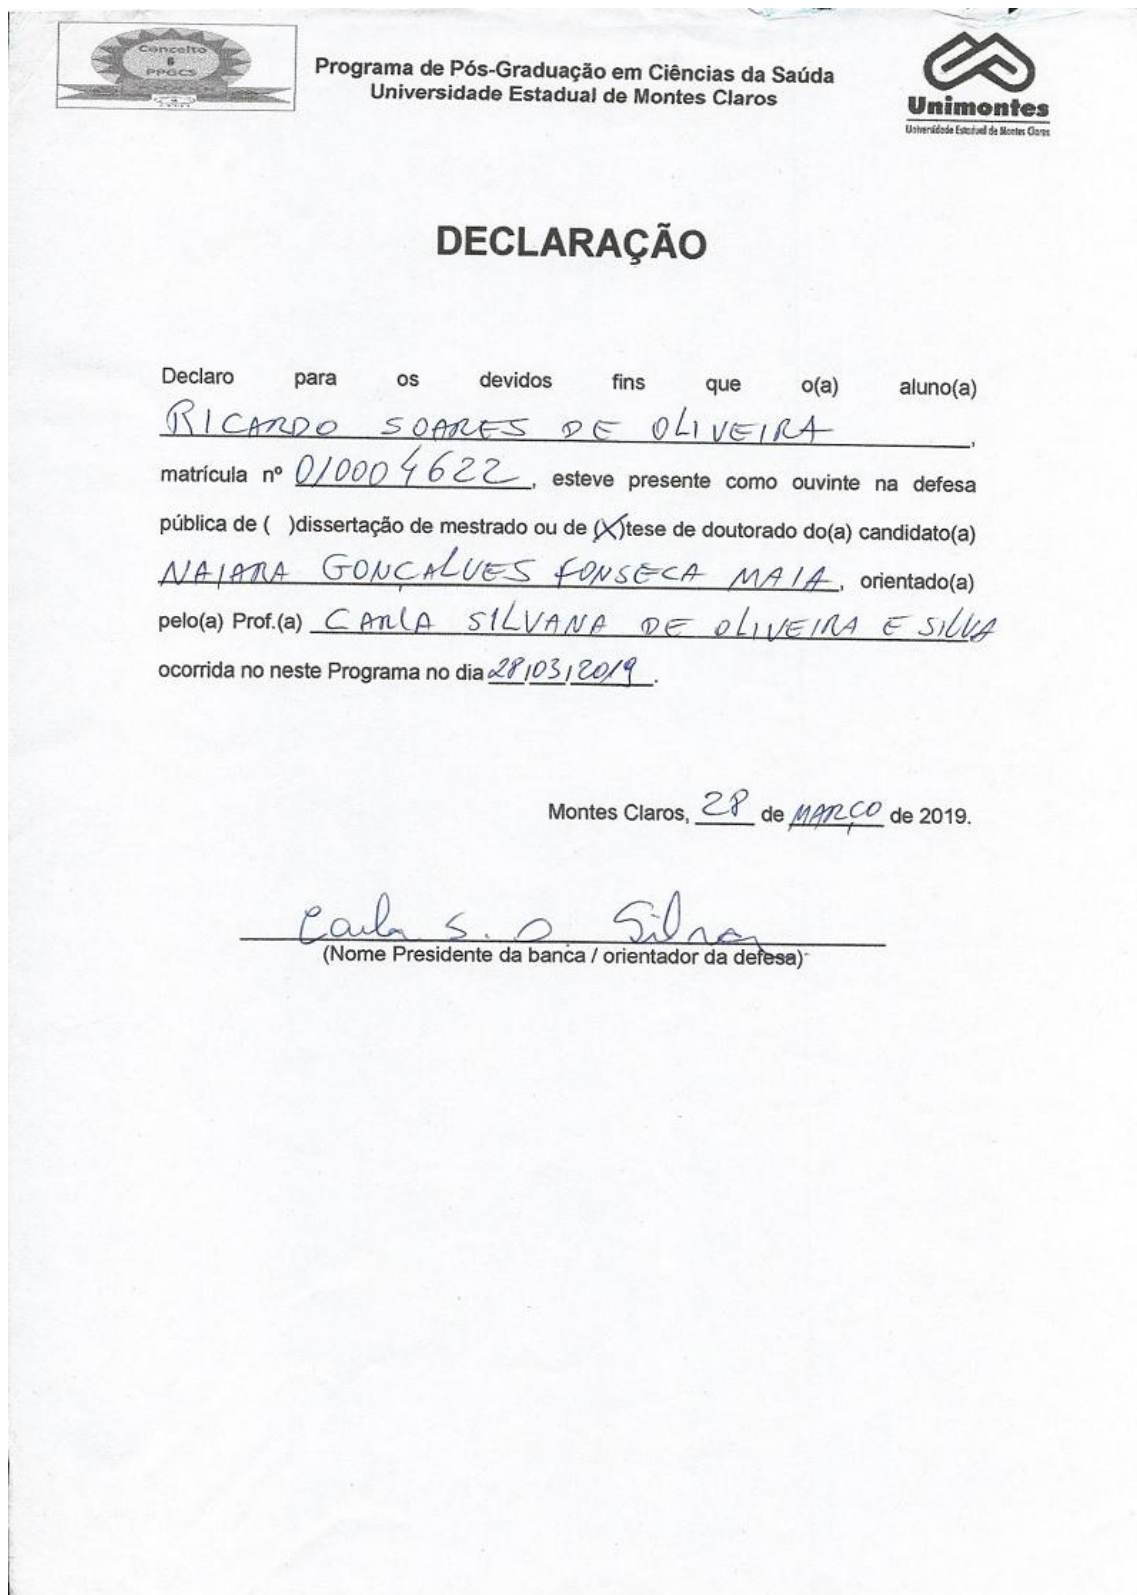 Conceito
6
PPGCS
Programa de Pós-Graduação em Ciências da Saúda
Universidade Estadual de Montes Claros
Unimontes
Universidade Estadual de Montes Claros
DECLARAÇÃO
Declaro para os devidos fins que o(a) aluno(a)
RICARDO SOARES DE OLIVEIRA,
matrícula nº 010004622, esteve presente como ouvinte na defesa
pública de ( )dissertação de mestrado ou de (X)tese de doutorado do(a) candidato(a)
NAIARA GONÇALVES FONSECA MAIA, orientado(a)
pelo(a) Prof.(a) CARLA SILVANA DE OLIVEIRA E SILVA
ocorrida no neste Programa no dia 28/03/2019.
Montes Claros, 28 de MARÇO de 2019.
Carla S. O Silva
(Nome Presidente da banca / orientador da defesa)